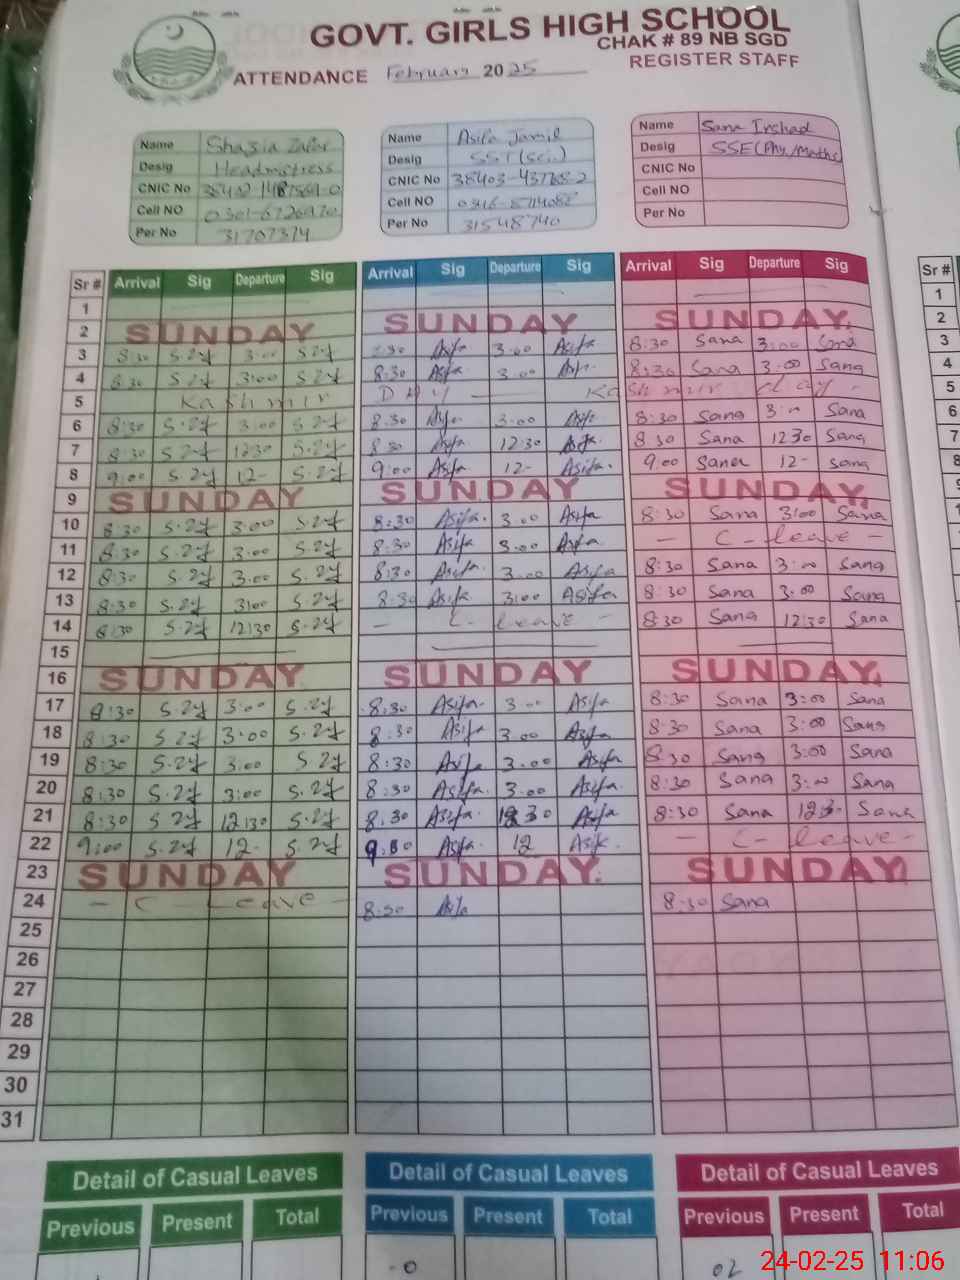 GOVT. GIRLS HIGH SCHOOL
CHAK # 89 NB SGD
ATTENDANCE February 2025 REGISTER STAFF
Name Shazia Zafar Name Asifa Jamil Name Sana Irshad
Desig Headmistress Desig SST (Sci.) Desig SSE(Phy./Maths)
CNIC No CNIC No CNIC No
Cell NO Cell NO Cell NO
Per No 31707374 Per No 31548740 Per No
Sr # Arrival Sig Departure Sig Arrival Sig Departure Sig Arrival Sig Departure Sig Sr #
1 1
2 SUNDAY SUNDAY SUNDAY 2
3 8:30 S.Zf 3:00 S.Zf 8:30 Asifa 3:00 Asifa 8:30 Sana 3:00 Sana 3
4 8:30 S.Zf 3:00 S.Zf 8:30 Asifa 3:00 Asifa 8:30 Sana 3:00 Sana 4
5 Kashmir Day Kashmir day 5
6 8:30 S.Zf 3:00 S.Zf 8:30 Asifa 3:00 Asifa 8:30 Sana 3:00 Sana 6
7 8:30 S.Zf 12:30 S.Zf 8:30 Asifa 12:30 Asifa 8:30 Sana 12:30 Sana 7
8 9:00 S.Zf 12- S.Zf 9:00 Asifa 12- Asifa. 9:00 Sana 12- Sana 8
9 SUNDAY SUNDAY SUNDAY
10 8:30 S.Zf 3:00 S.Zf 8:30 Asifa. 3:00 Asifa 8:30 Sana 3:00 Sana
11 8:30 S.Zf 3:00 S.Zf 8:30 Asifa 3:00 Asifa - C - leave -
12 8:30 S.Zf 3:00 S.Zf 8:30 Asifa. 3:00 Asifa 8:30 Sana 3:00 Sana
13 8:30 S.Zf 3:00 S.Zf 8:30 Asifa 3:00 Asifa 8:30 Sana 3:00 Sana
14 8:30 S.Zf 12:30 S.Zf - C - leave - 8:30 Sana 12:30 Sana
15
16 SUNDAY SUNDAY SUNDAY
17 8:30 S.Zf 3:00 S.Zf 8:30 Asifa. 3:00 Asifa 8:30 Sana 3:00 Sana
18 8:30 S.Zf 3:00 S.Zf 8:30 Asifa 3:00 Asifa 8:30 Sana 3:00 Sana
19 8:30 S.Zf 3:00 S.Zf 8:30 Asifa 3:00 Asifa 8:30 Sana 3:00 Sana
20 8:30 S.Zf 3:00 S.Zf 8:30 Asifa. 3:00 Asifa. 8:30 Sana 3:00 Sana
21 8:30 S.Zf 12:30 S.Zf 8:30 Asifa. 12:30 Asifa 8:30 Sana 12:30 Sana
22 9:00 S.Zf 12- S.Zf 9:00 Asifa. 12 Asifa - C - leave -
23 SUNDAY SUNDAY SUNDAY
24 - C - Leave - 8:30 Asifa 8:30 Sana
25
26
27
28
29
30
31
Detail of Casual Leaves Detail of Casual Leaves Detail of Casual Leaves
Previous Present Total Previous Present Total Previous Present Total
0 02
24-02-25 11:06